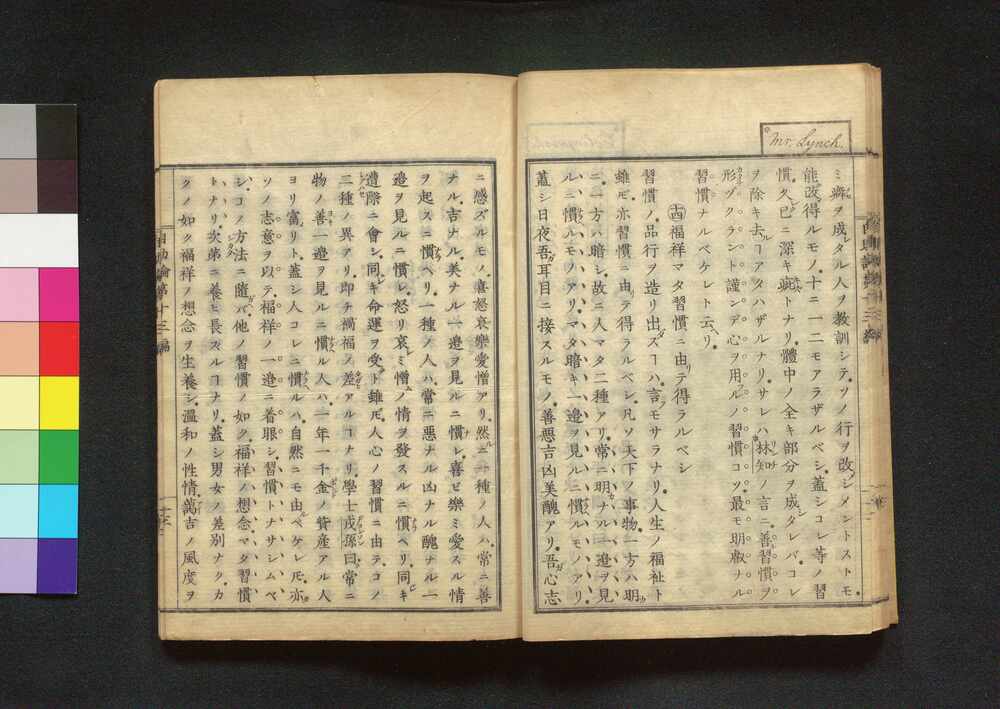 Mr. Lynch.
ミ癖ヲ成タル人ヲ教訓シテ、ソノ行ヲ改シメントストモ、
能改得ルモノ、十ニ一二モアラザルベシ、蓋シコレ等ノ習
慣、久已ニ深キ疵トナリ、體中ノ全キ部分ヲ成タレバ、コレ
ヲ除キ去ルコアタハザルナリ、サレハ林知ノ言ニ善習慣ヲ
形ヅクラント謹ンデ心ヲ用フルノ習慣コソ、最モ明敏ナル
習慣ナルベケレト云リ、
十四福祥マタ習慣ニ由リテ得ラルベシ
習慣ノ品行ヲ造リ出ダスコハ、言フモサラナリ、人生ノ福祉ト
雖ドモ、亦習慣ニ由リテ得ラルベシ、凡ソ天下ノ事物、一方ハ明カ
ニ、一方ハ暗シ、故ニ人マタ二種アリ、常ニ明ナル一邉ヲ見
ルニ慣ルモノアリ、マタ暗キ一邉ヲ見ルニ慣ルモノアリ、
蓋シ日夜吾耳目ニ接スルモノ、善惡吉凶美醜アリ、吾ガ心志
ニ感ズルモノ、喜怒哀樂愛憎アリ、然ルニ一種ノ人ハ、常ニ善
ナル、吉ナル、美ナル一邉ヲ見ルニ慣レ、喜ビ樂ミ愛スル情
ヲ起スニ慣ヘリ、一種ノ人ハ、常ニ悪ナル凶ナル醜ナル一
邉ヲ見ルニ慣レ、怒リ哀ミ憎ムノ情ヲ發スルニ慣ヘリ、同ジキ
遭際ニ會シ、同ジキ命運ヲ受クト雖ドモ、人心ノ習慣ニ由テ、コノ
二種ノ異アリ、即チ禍福ノ差アルコナリ、學士戎孫曰、常ニ
物ノ善キ一邉ヲ見ルニ慣ルヽ人ハ、一年一千金ノ貲産アル人
ヨリ富リト、蓋シ人コレニ慣ルヽハ、自然ニモ由ベケレドモ、亦
ソノ志意ヲ以テ、福祥ノ一邉ニ着眼シ、習慣トナサシムベ
シ、コノ方法ニ隨ヘバ、他ノ習慣ノ如ク、福祥ノ想念マタ習慣
トナリ、次第ニ養モ長スルコナリ、蓋シ男女ノ差別ナク、カ
クノ如ク福祥ノ想念ヲ生養シ、溫和ノ性情、萬吉ノ風度ヲ
自助論第十三編